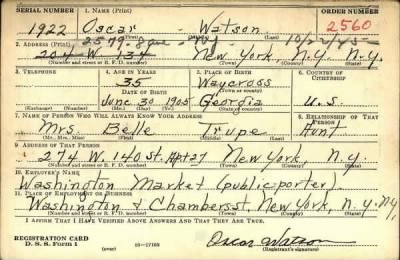 SERIAL NUMBER 1. NAME (Print) ORDER NUMBER
1922 Oscar Watson 2560
(First) (Middle) (Last)
2. ADDRESS (Print) 2579 8 ave 10/22/45
204 W 134 New York, N.Y. N.Y.
(Number and street or R. F. D. number) (Town) (County) (State)
3. TELEPHONE 4. AGE IN YEARS 5. PLACE OF BIRTH 6. COUNTRY OF CITIZENSHIP
35 Waycross
DATE OF BIRTH (Town or county)
June 30 1905 Georgia U.S.
(Exchange) (Number) (Mo.) (Day) (Yr.) (State or country)
7. NAME OF PERSON WHO WILL ALWAYS KNOW YOUR ADDRESS 8. RELATIONSHIP OF THAT PERSON
Mrs. Belle Trupe Aunt
(Mr., Mrs., Miss) (First) (Middle) (Last)
9. ADDRESS OF THAT PERSON
274 W. 140 St. Apt 27 New York, N.Y.
(Number and street or R. F. D. number) (Town) (County) (State)
10. EMPLOYER'S NAME
Washington Market (public porter).
11. PLACE OF EMPLOYMENT OR BUSINESS
Washington & Chambers st. New York, N.Y. N.Y.
(Number and street or R. F. D. number) (Town) (County) (State)
I AFFIRM THAT I HAVE VERIFIED ABOVE ANSWERS AND THAT THEY ARE TRUE.
REGISTRATION CARD
D. S. S. Form 1 (over) 16-17105 Oscar Watson
(Registrant's signature)